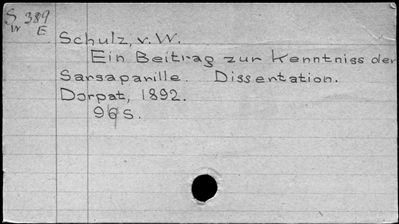 S 389
W E
Schulz, v. W.
Ein Beitrag zur Kenntniss der
Sarsaparille. Dissentation.
Dorpat, 1892.
96 S.